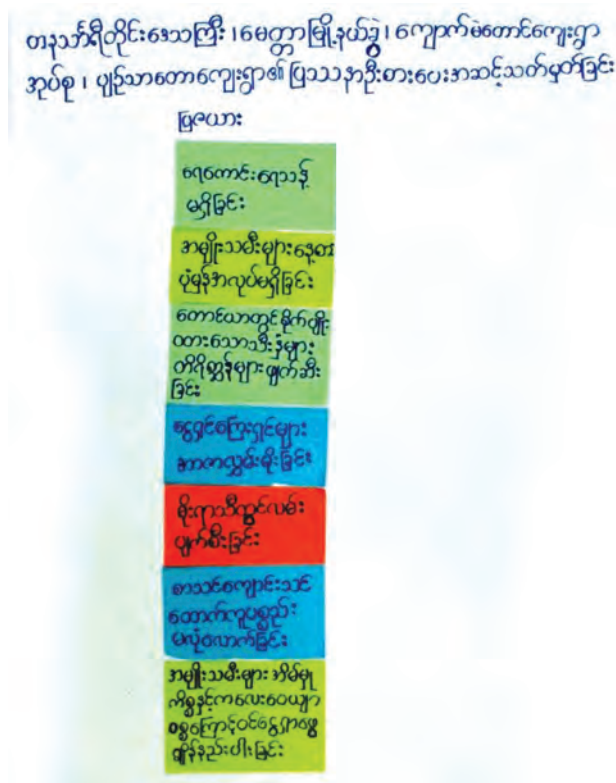 တနင်္သာရီတိုင်းဒေသကြီး ၊ မေတ္တာမြို့နယ်ခွဲ ၊ ကျောက်မဲတောင်ကျေးရွာ
အုပ်စု ၊ ပျဉ်သာတောကျေးရွာ၏ ပြဿနာဦးစားပေးအဆင့်သတ်မှတ်ခြင်း
ပြဇယား
ရေကောင်းရေသန့်
မရှိခြင်း
အမျိုးသမီးများနေ့စား
ပုံမှန်အလုပ်မရှိခြင်း
တောင်ယာတွင်စိုက်ပျိုး
ထားသောသီးနှံများ
တိရိစ္ဆာန်များဖျက်ဆီး
ခြင်း
ငွေရှင်ကြေးရှင်များ
အာဏာလွှမ်းမိုးခြင်း
မိုးရာသီတွင်လမ်း
ပျက်စီးခြင်း
စာသင်ကျောင်းသင်
ထောက်ကူပစ္စည်း
မလုံလောက်ခြင်း
အမျိုးသမီးများအိမ်မှု
ကိစ္စနှင့်ကလေးဝေယျာ
ဝစ္စကြောင့်ဝင်ငွေရှာဖွေ
ချိန်နည်းပါးခြင်း